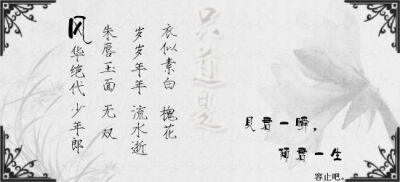 风华绝代少年郎
朱唇玉面 无双
岁岁年年 流水逝
衣似素白 槐花
只道是
見君一瞬，
倾君一生
容止吧。